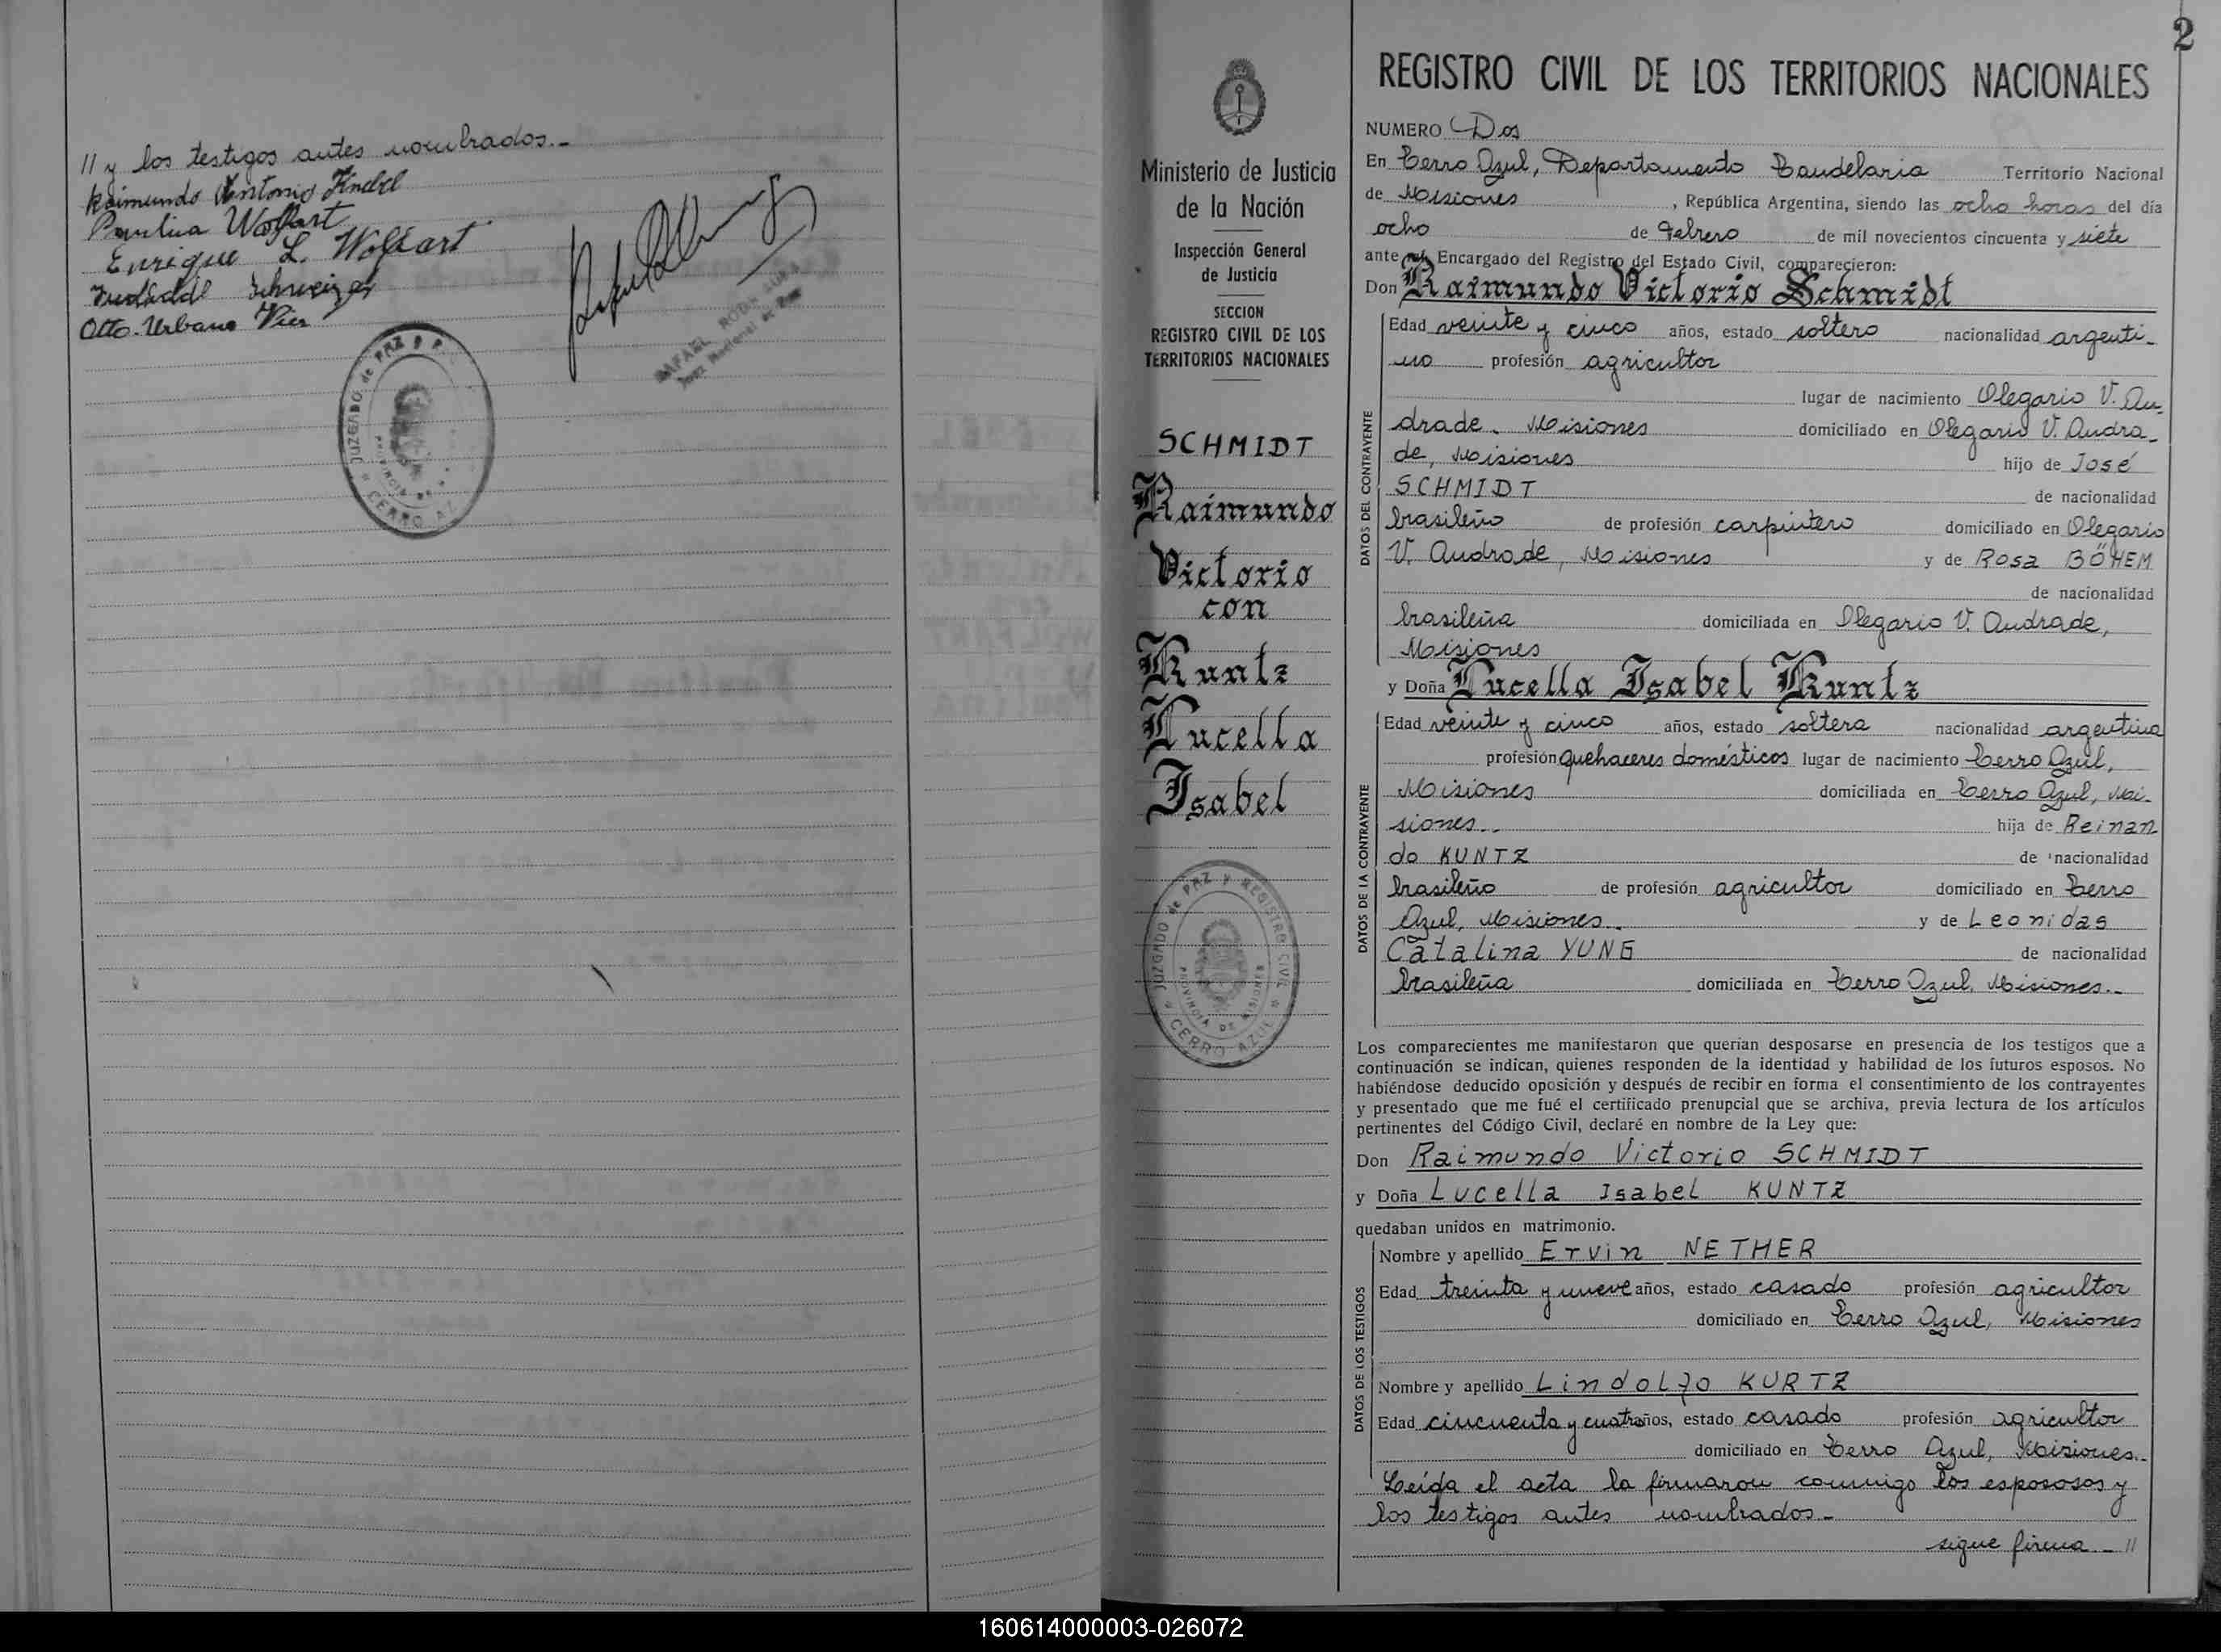 // y los testigos antes nombrados.-
Raimundo Antonio Knebel
Paulina Wolfart
Enrique L. Wolfart
Schweizer
Otto Urbano Vier
JUZGADO de PAZ Y R
PROVINCIA DE
CERRO AZ
RAFAEL
2
Ministerio de Justicia
de la Nación
Inspección General
de Justicia
SECCION
REGISTRO CIVIL DE LOS
TERRITORIOS NACIONALES
SCHMIDT
Raimundo
Victorio
con
Kuntz
Lucella
Isabel
JUZGADO de PAZ Y REGISTRO CIVIL
PROVINCIA DE MISIONES
* CERRO AZUL *
REGISTRO CIVIL DE LOS TERRITORIOS NACIONALES
NUMERO Dos
En Cerro Azul, Departamento Candelaria Territorio Nacional
de Misiones, República Argentina, siendo las ocho horas del día
ocho de Febrero de mil novecientos cincuenta y siete
ante mí, Encargado del Registro del Estado Civil, comparecieron:
Don Raimundo Victorio Schmidt
DATOS DEL CONTRAYENTE
Edad veinte y cinco años, estado soltero nacionalidad argenti-
no profesión agricultor
lugar de nacimiento Olegario V. An-
drade, Misiones domiciliado en Olegario V. Andra-
de, Misiones hijo de José
SCHMIDT de nacionalidad
brasileño de profesión carpintero domiciliado en Olegario
V. Andrade, Misiones y de Rosa BÖHEM
de nacionalidad
brasileña domiciliada en Olegario V. Andrade,
Misiones
y Doña Lucella Isabel Kuntz
DATOS DE LA CONTRAYENTE
Edad veinte y cinco años, estado soltera nacionalidad argentina
profesión quehaceres domésticos lugar de nacimiento Cerro Azul,
Misiones domiciliada en Cerro Azul, Mi-
siones.- hija de Reinan
do KUNTZ de nacionalidad
brasileño de profesión agricultor domiciliado en Cerro
Azul, Misiones. y de Leonidas
Catalina YUNG de nacionalidad
brasileña domiciliada en Cerro Azul, Misiones.-
Los comparecientes me manifestaron que querían desposarse en presencia de los testigos que a
continuación se indican, quienes responden de la identidad y habilidad de los futuros esposos. No
habiéndose deducido oposición y después de recibir en forma el consentimiento de los contrayentes
y presentado que me fué el certificado prenupcial que se archiva, previa lectura de los artículos
pertinentes del Código Civil, declaré en nombre de la Ley que:
Don Raimundo Victorio SCHMIDT
y Doña Lucella Isabel KUNTZ
quedaban unidos en matrimonio.
DATOS DE LOS TESTIGOS
Nombre y apellido Ervin NETHER
Edad treinta y nueve años, estado casado profesión agricultor
domiciliado en Cerro Azul, Misiones
Nombre y apellido Lindolfo KURTZ
Edad cincuenta y cuatro años, estado casado profesión agricultor
domiciliado en Cerro Azul, Misiones.-
Leída el acta la firmaron conmigo los espososos y
los testigos antes nombrados.-
sigue firma.- //
160614000003-026072